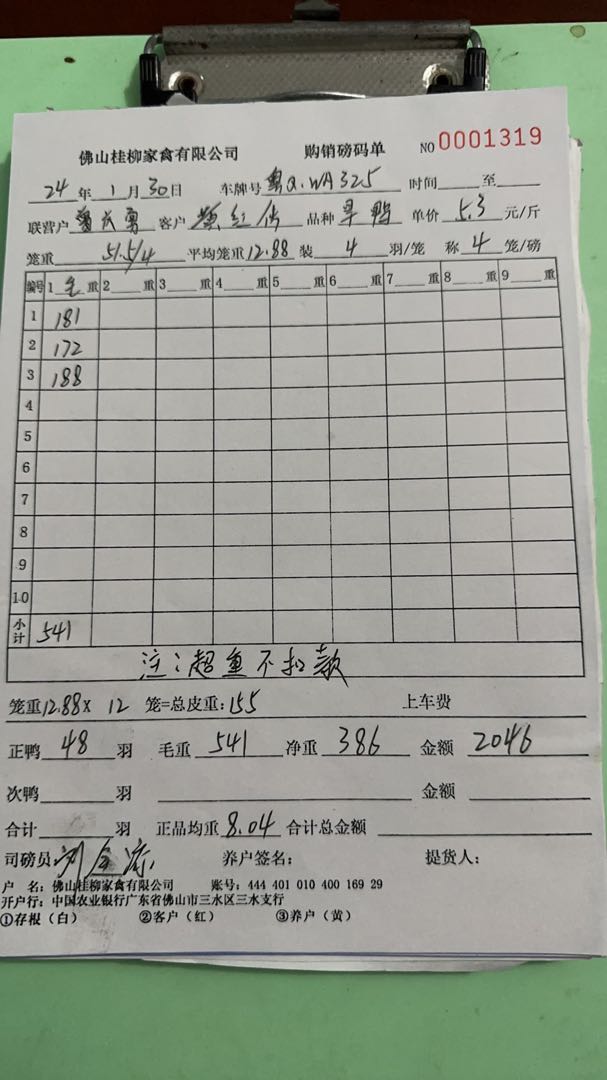 佛山桂柳家禽有限公司 购销磅码单 NO 0001319
24年1月30日 车牌号粤Q.WA325 时间 至
联营户 客户 品种 旱鸭 单价 5.3 元/斤
笼重 51.5/4 平均笼重12.88 装 4 羽/笼 称 4 笼/磅
编号 1 毛 重 2 重 3 重 4 重 5 重 6 重 7 重 8 重 9 重
1 181
2 172
3 188
4
5
6
7
8
9
10
小计 541
注:超重不扣款
笼重12.88× 12 笼=总皮重:155 上车费
正鸭 48 羽 毛重 541 净重 386 金额 2046
次鸭 羽 金额
合计 羽 正品均重 8.04 合计总金额
司磅员: 养户签名: 提货人:
户 名:佛山桂柳家禽有限公司 账号:444 401 010 400 169 29
开户行:中国农业银行广东省佛山市三水区三水支行
①存根(白) ②客户(红) ③养户(黄)